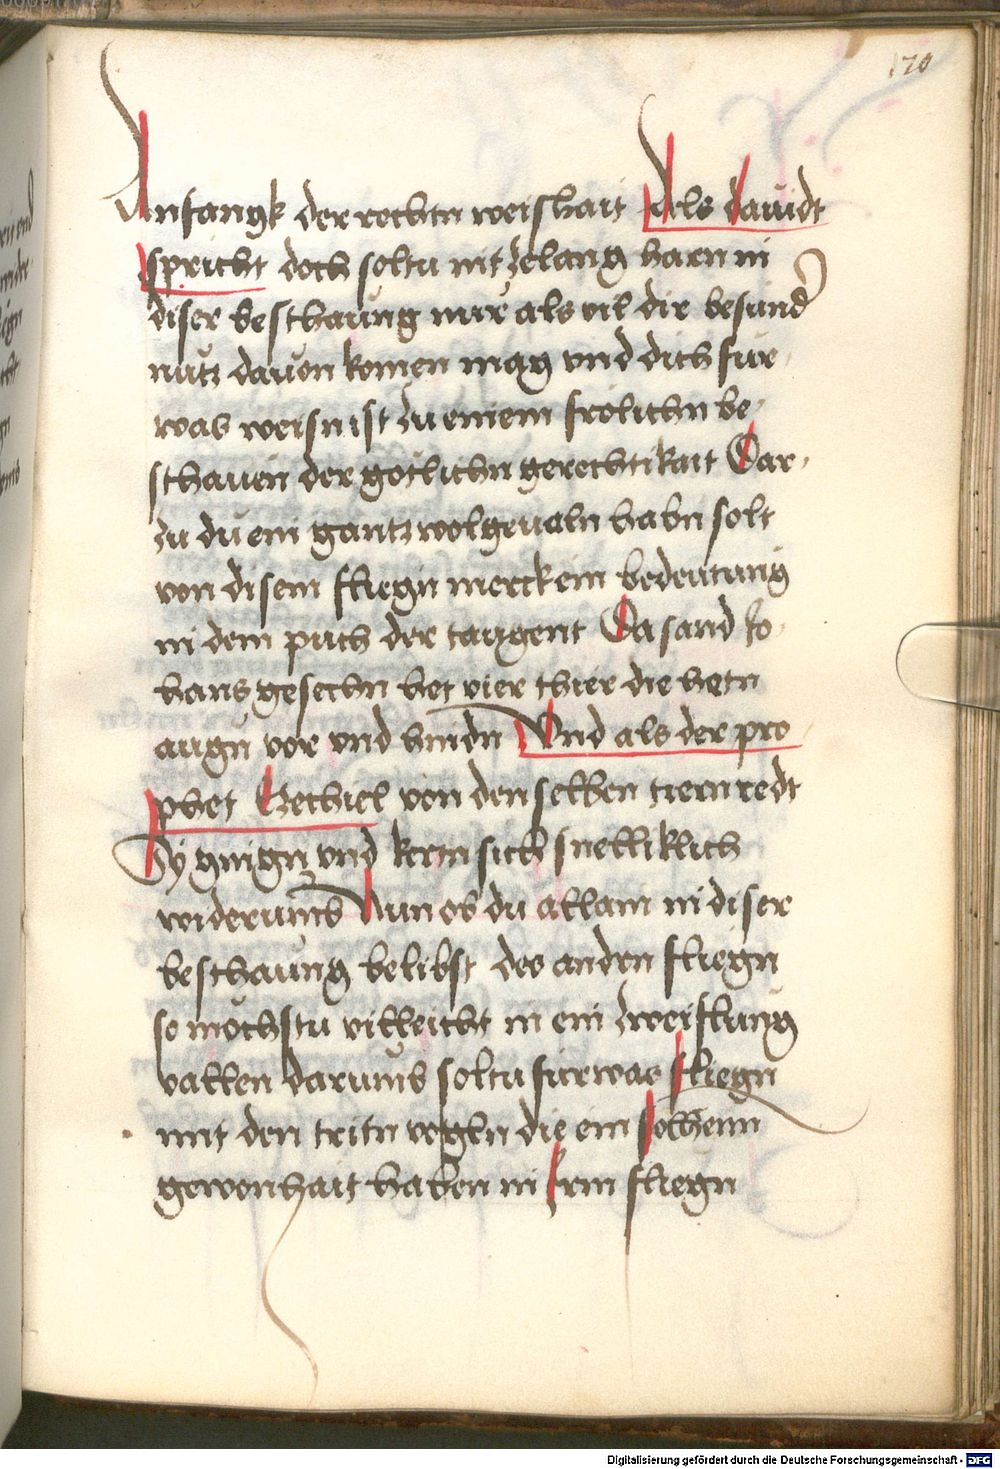 120
Anfangk der rechtn weishait Als dauidt
spricht doch soltu nit zelang harn in
diser beschaung nur als vil dir besund
nutz dauon komen mag vnd dich fur
was weisn ist zu einem frolichn be
schauen der gotlichn gerechtikait Dar
zu du ein gantz wolgeualn habn solt
von disem fliegn merck ein bedeutung
in dem puch der taugent Da sand Jo
hans gesechn het vier thier die hetn
augn vor vnd hindn Vnd als der pro
phet Ezechiel von den selben tiern redt
Sy gingn vnd kertn sich snelliklich
widerumb Nun ob du allain in diser
beschaung belibst des anden fliegn
so mochstu villeicht in ein zweiflung
vallen darumb soltu furwas fliegn
mit den tritn vogln die ein solhenn
gewonhait haben in irm fliegn
Digitalisierung gefördert durch die Deutsche Forschungsgemeinschaft - DFG